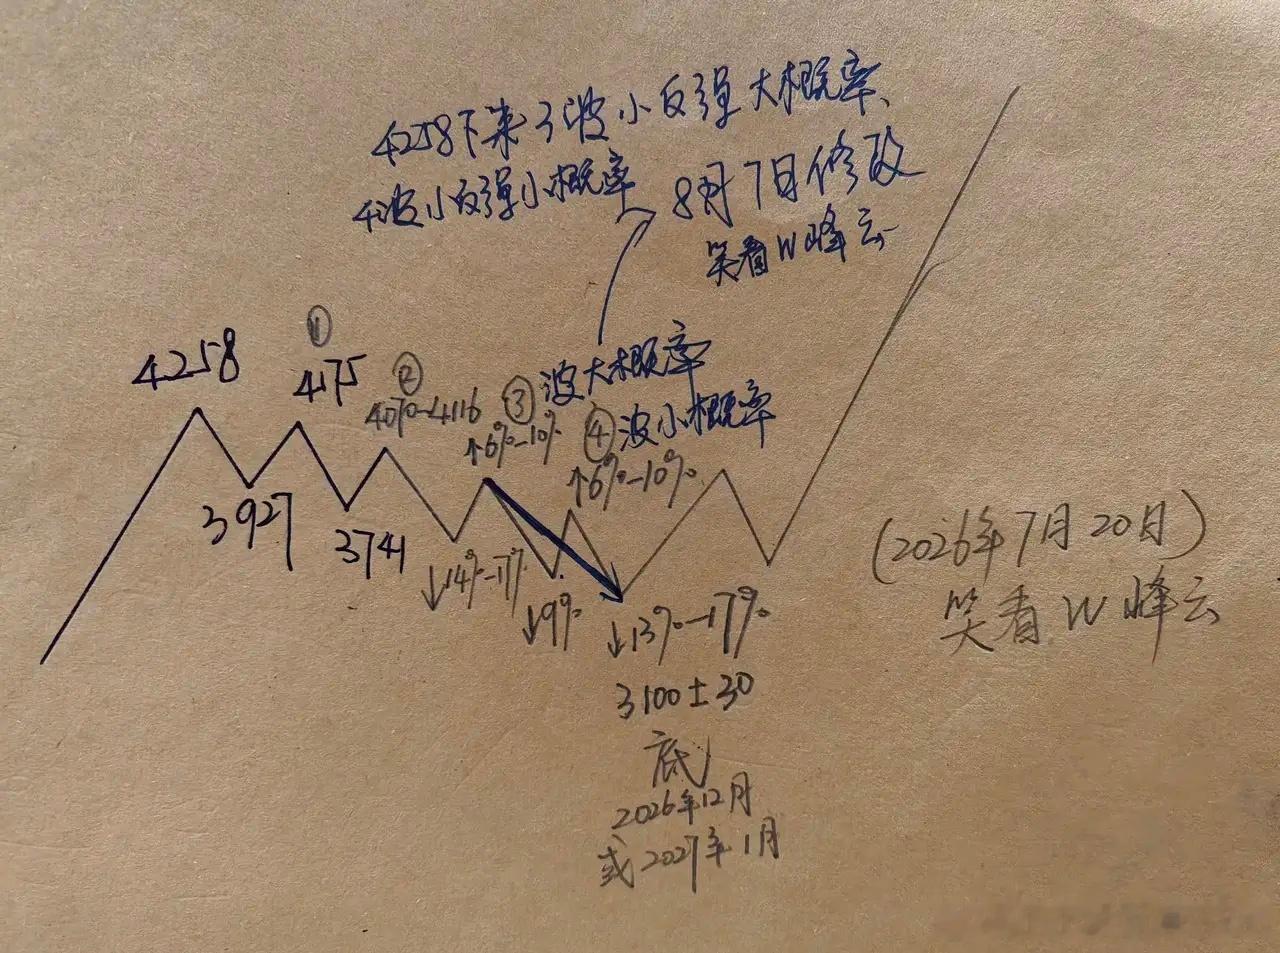 4258下来3波小反弹大概率、
4波小反弹小概率
8月7日修改
笑看W峰云
4258
①
4175
②
4070-4116
③波大概率
↑6%-10%
④波小概率
↑6%-10%
3927
3741
↓14%-17%
↓9%
↓13%-17%
3100±30
底
2026年12月
或2027年1月
(2026年7月20日)
笑看W峰云